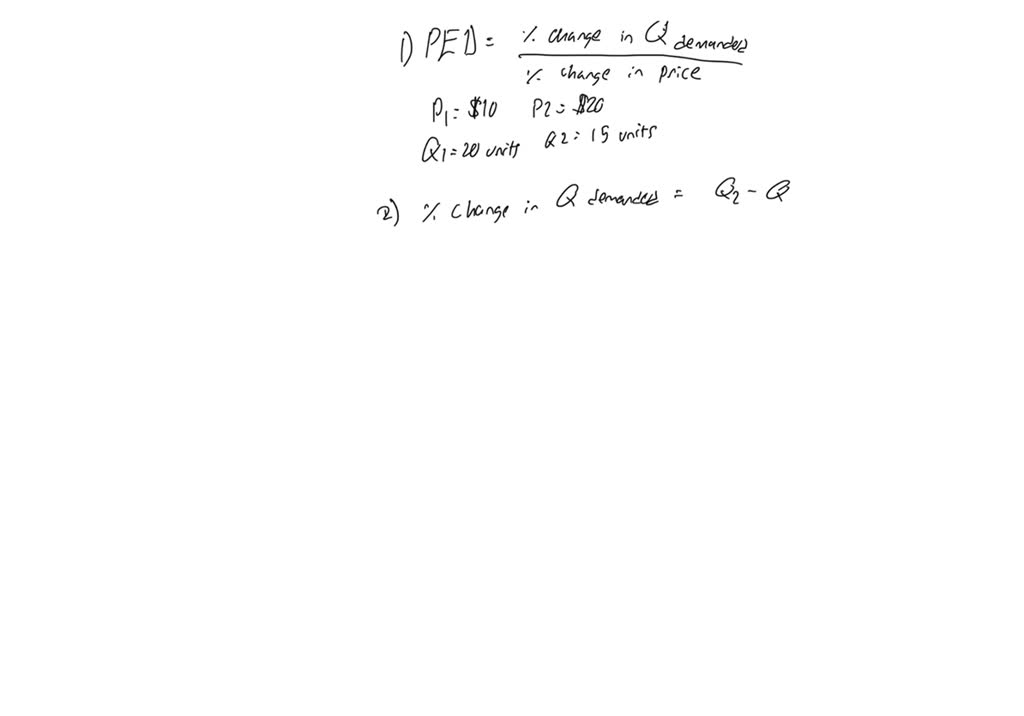 1) PED = % change in Q demanded
% change in price
P1 = $10 P2 = $20
Q1 = 20 units Q2 = 15 units
2) % change in Q demanded = Q2 - Q